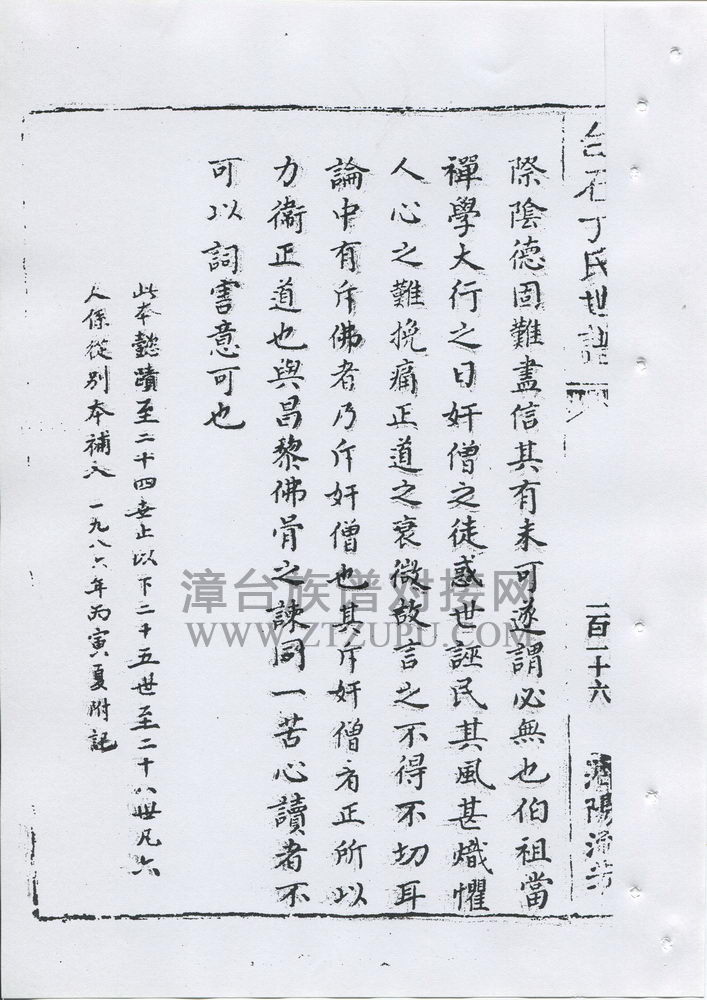 白石丁氏世譜
一百一十六
濟陽
際陰德固難盡信其有未可遂謂必無也伯祖當
禪學大行之日奸僧之徒惑世誣民其風甚熾懼
人心之難挽痛正道之衰微故言之不得不切耳
論中有斥佛者乃斥奸僧也其斥奸僧者正所以
力衛正道也與昌黎佛骨之諫同一苦心讀者不
可以詞害意可也
此本懿蹟至二十四世止以下二十五世至二十八世凡六
人係從別本補入 一九八六年丙寅夏附記
漳台族谱对接网
WWW.ZTZUPU.COM